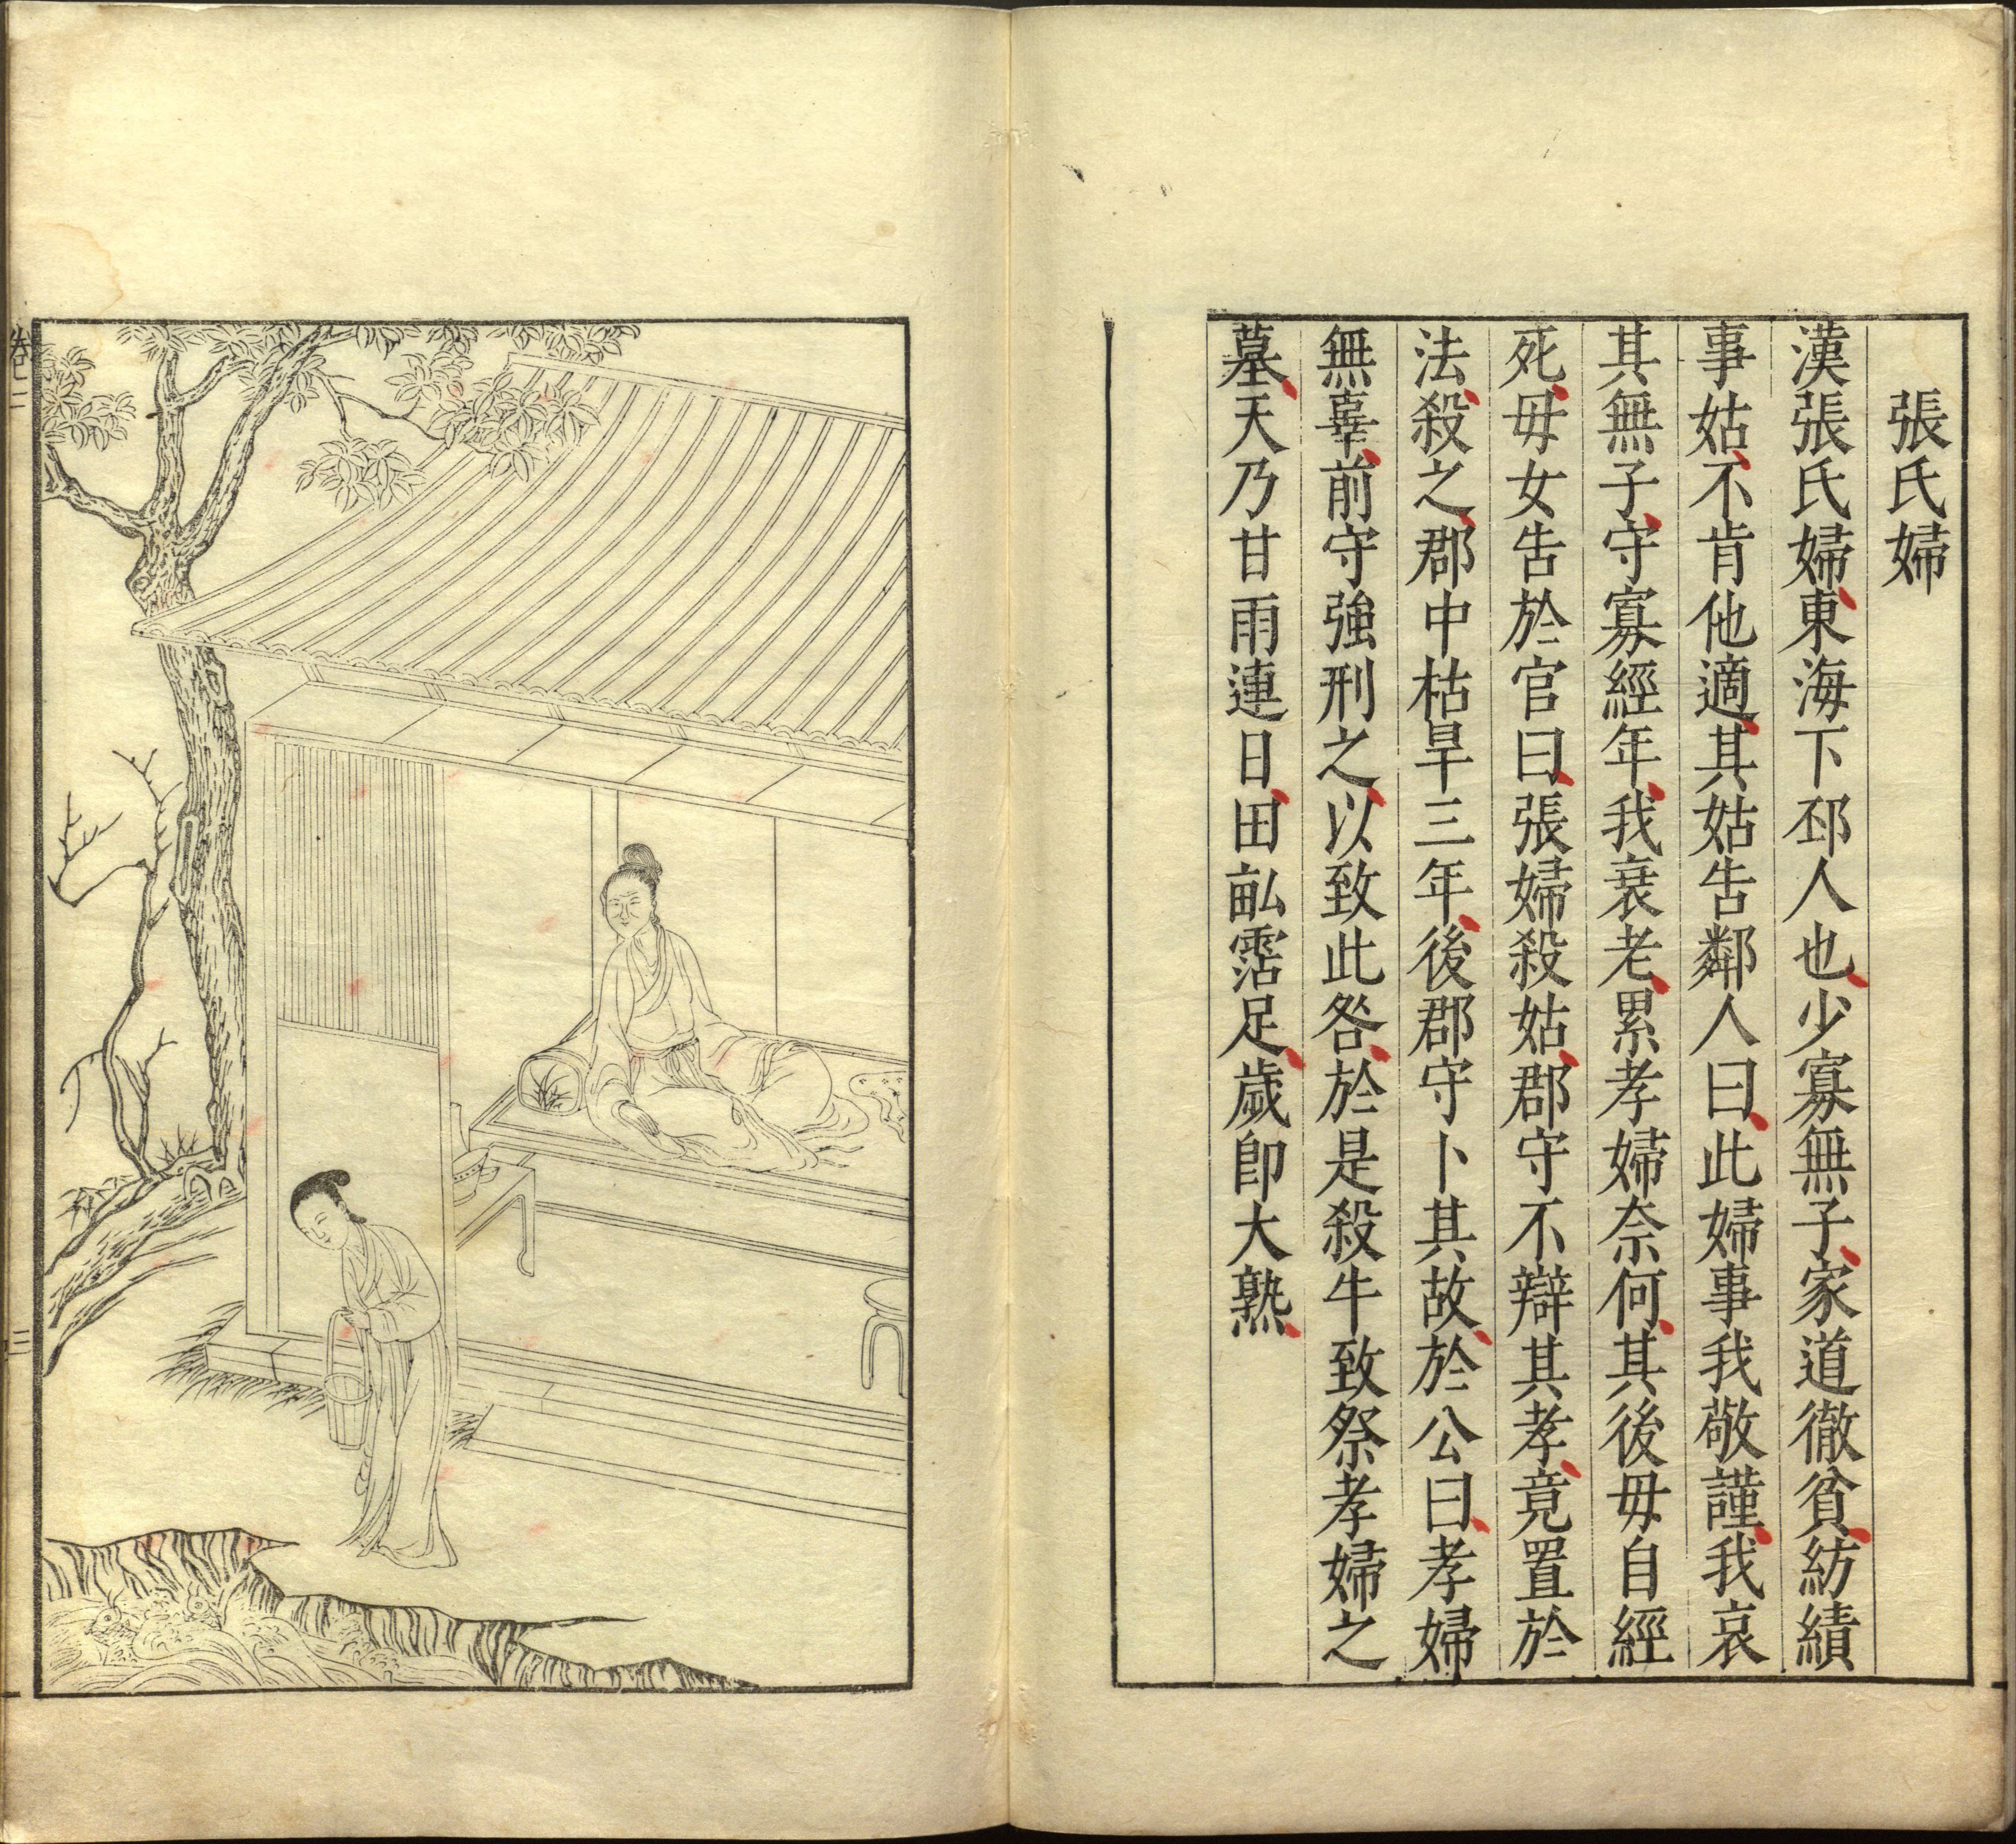 張氏婦
漢張氏婦東海下邳人也少寡無子家道徹貧紡績
事姑不肯他適其姑告鄰人曰此婦事我敬謹我哀
其無子守寡經年我衰老累孝婦奈何其後毋自經
死毋女告於官曰張婦殺姑郡守不辯其孝竟置於
法殺之郡中枯旱三年後郡守卜其故於公曰孝婦
無辜前守強刑之以致此咎於是殺牛致祭孝婦之
墓天乃甘雨連日田畝霑足歲卽大熟
卷二
三